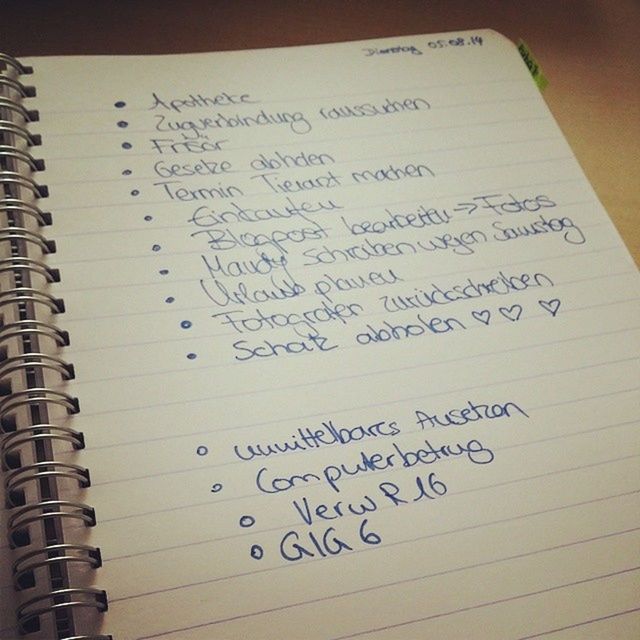 Dienstag 05.08.14
Apotheke
Zugverbindung raussuchen
Frisör
Gesetze abholen
Termin Tierarzt machen
Einkaufen
Blogpost bearbeiten → Fotos
Mandy schreiben wegen Samstag
Urlaub planen
Fotografen zurückschreiben
Schatz abholen ♡ ♡ ♡
unmittelbares Ansetzen
Computerbetrug
VerwR 16
GIG 6